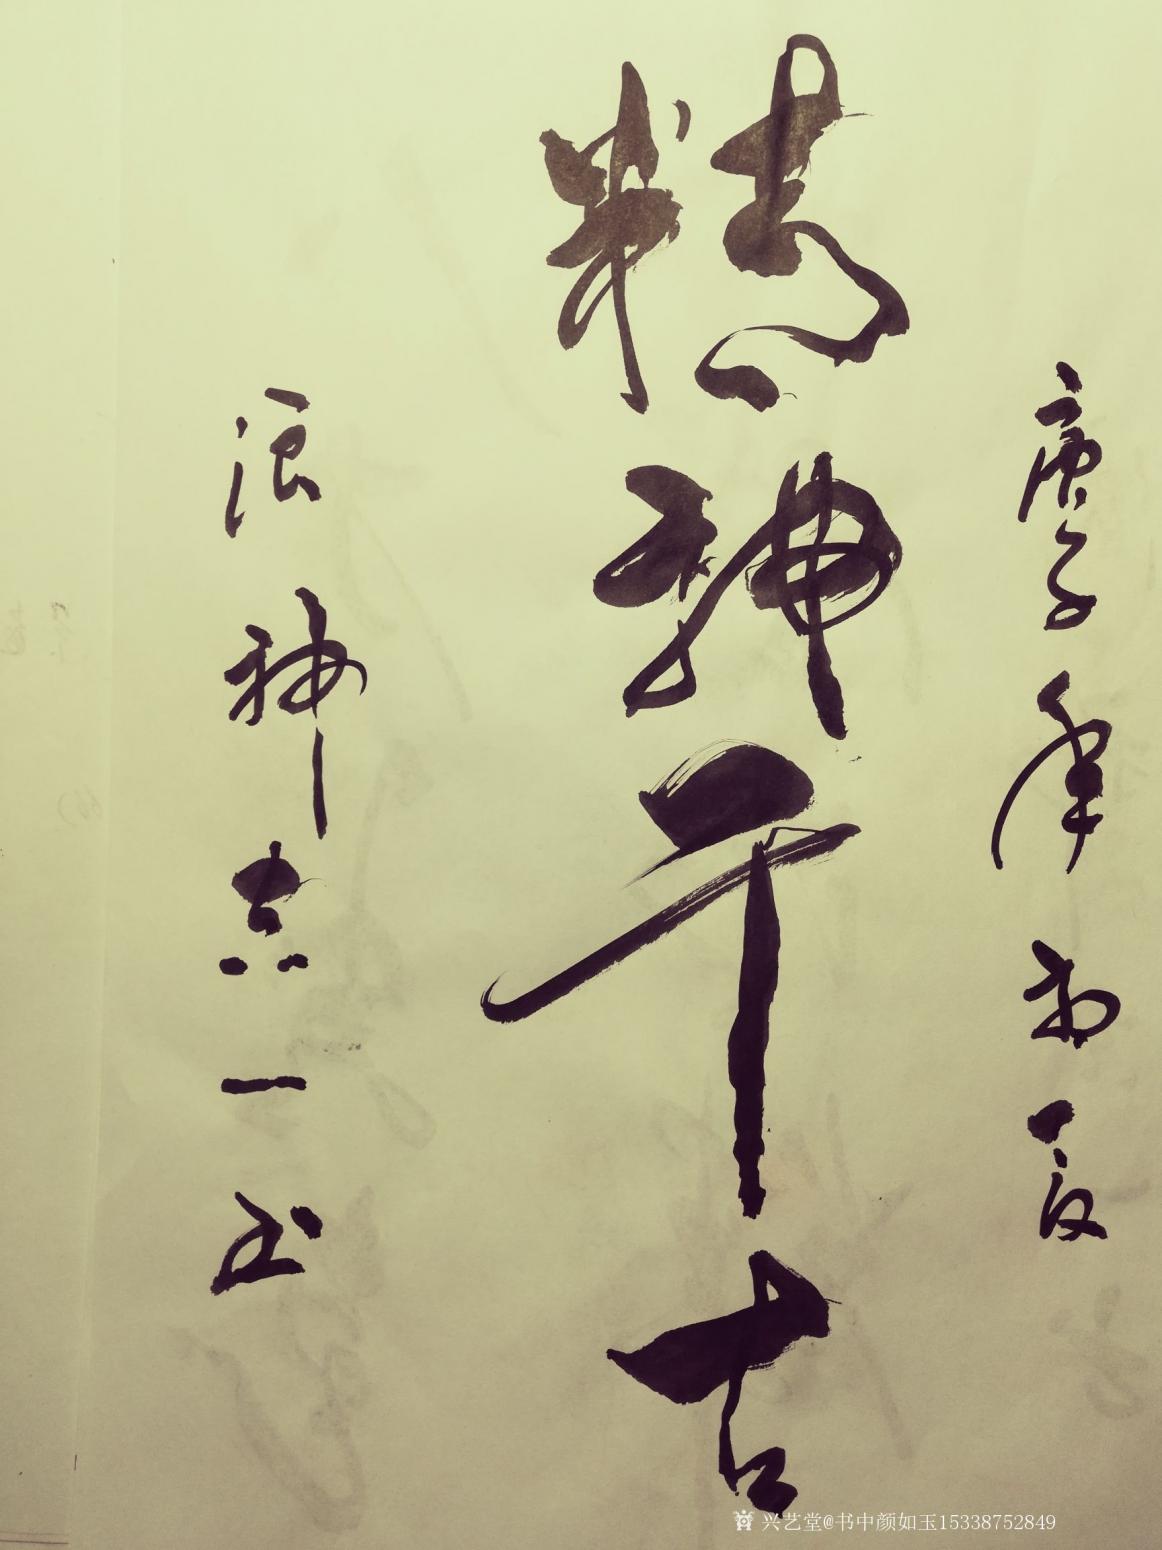 庚子年初夏
精神千古
浪神志一书
兴艺堂@书中颜如玉15338752849